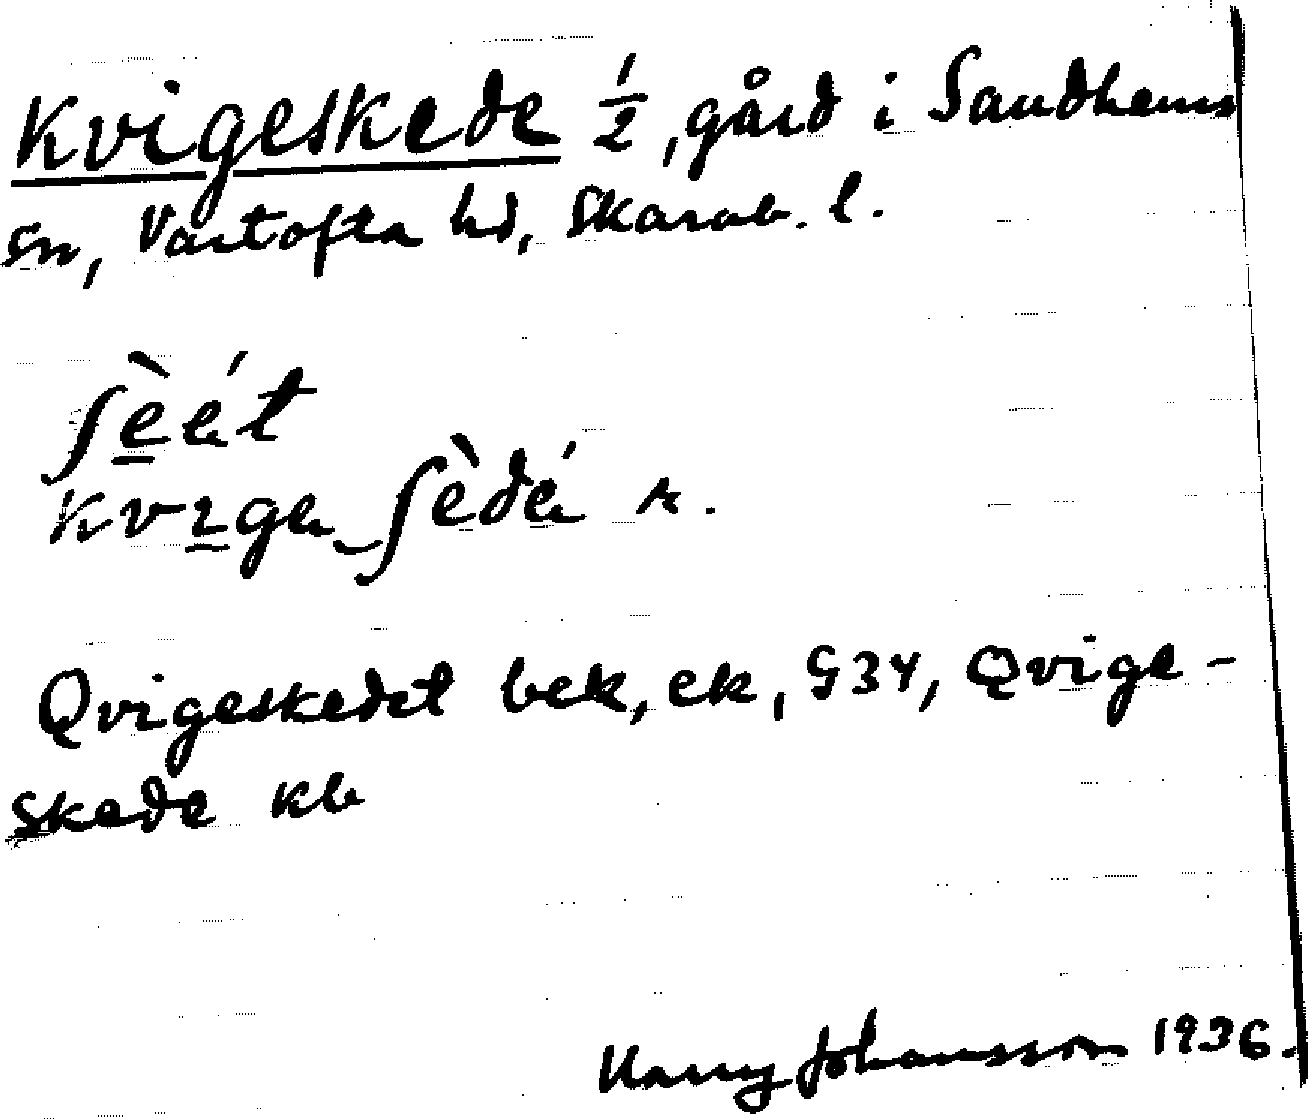 Kvigeskede 1/2, gård i Sandhems
sn, Vartofta hd, Skarab. l.
ʃèét
kvɪge‿ʃèdé k.
Qvigeskedet bek, ek, G34, Qvige-
skede kb
Harry Johansson 1936.